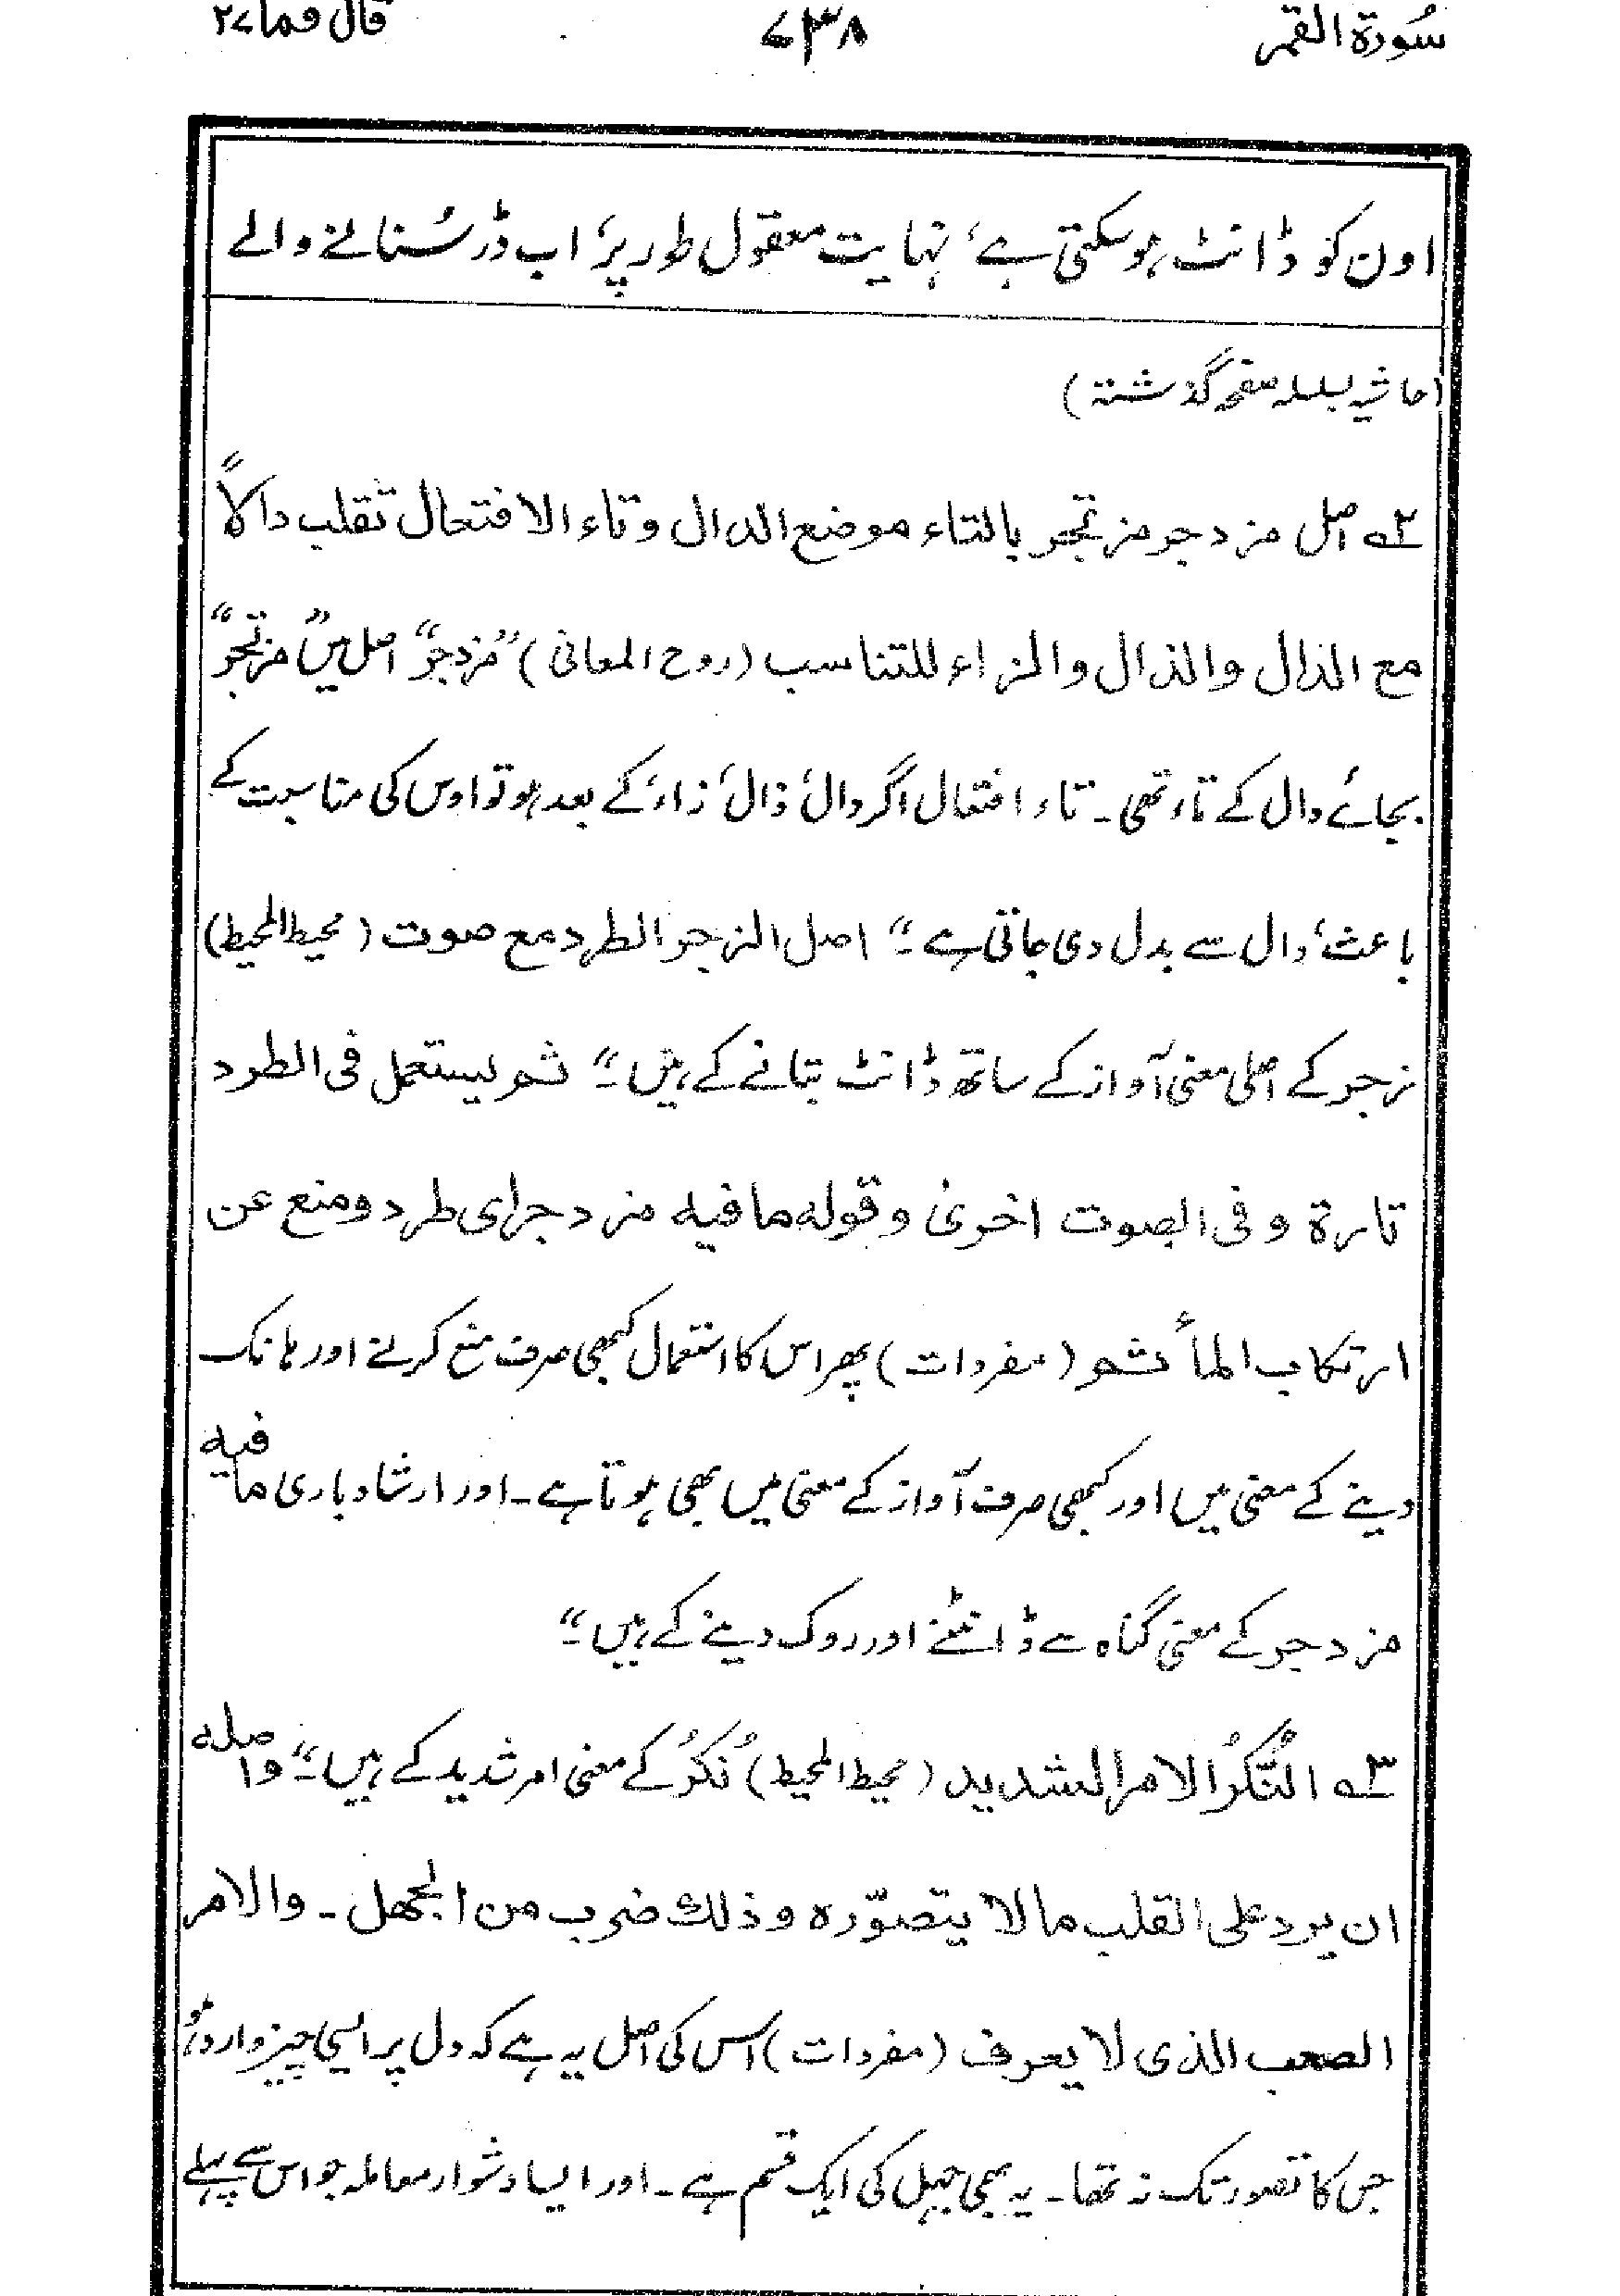 سُورة القمر ۷۳۸ قال فما ۲۷
اون کو ڈانٹ ہو سکتی ہے، نہایت معقول طور پر، اب ڈر سُنانے والے
(حاشیہ بسلسلہ صفحہ گذشتہ)
۲ے اصل مزدجر مزتجر بالتاء موضع الدال وتاء الافتعال تقلب دالاً
مع الدال والذال والزاء للتناسب (روح المعانی) "مُزدجر" اصل میں "مزتجر"
بجائے دال کے تاء تھی ۔ تاء افتعال اگر دال، ذال، زاء، کے بعد ہو تو اوس کی مناسبت کے
باعث، دال سے بدل دی جاتی ہے ۔" اصل الزجر الطرد مع صوت (محیط المحیط)
زجر کے اصلی معنی آواز کے ساتھ ڈانٹ بتانے کے ہیں ۔" ثم یستعمل فی الطرد
تارۃ و فی الصوت اخریٰ وقولہ ما فیہ مزدجر ای طرد ومنع عن
ارتکاب المأثم (مفردات) پھر اس کا استعمال کبھی صرف منع کرنے اور ہانک
دینے کے معنی میں اور کبھی صرف آواز کے معنی میں بھی ہوتا ہے ۔ اور ارشاد باری ما فیہ
مزدجر کے معنی گناہ سے ڈانٹنے اور روک دینے کے ہیں ۔"
۳ے النُّکُرُ الامر الشدید (محیط المحیط) نُکُرُ کے معنی امر شدید کے ہیں ۔" واصلہ
ان یرد علی القلب ما لا یتصوّرہ وذلك ضرب من الجھل ۔ والامر
الصعب الذی لا یعرف (مفردات) اس کی اصل یہ ہے کہ دل پر ایسی چیز وارد ہو
جس کا تصور تک نہ تھا ۔ یہ بھی جہل کی ایک قسم ہے ۔ اور ایسا دشوار معاملہ جو اس سے پہلے